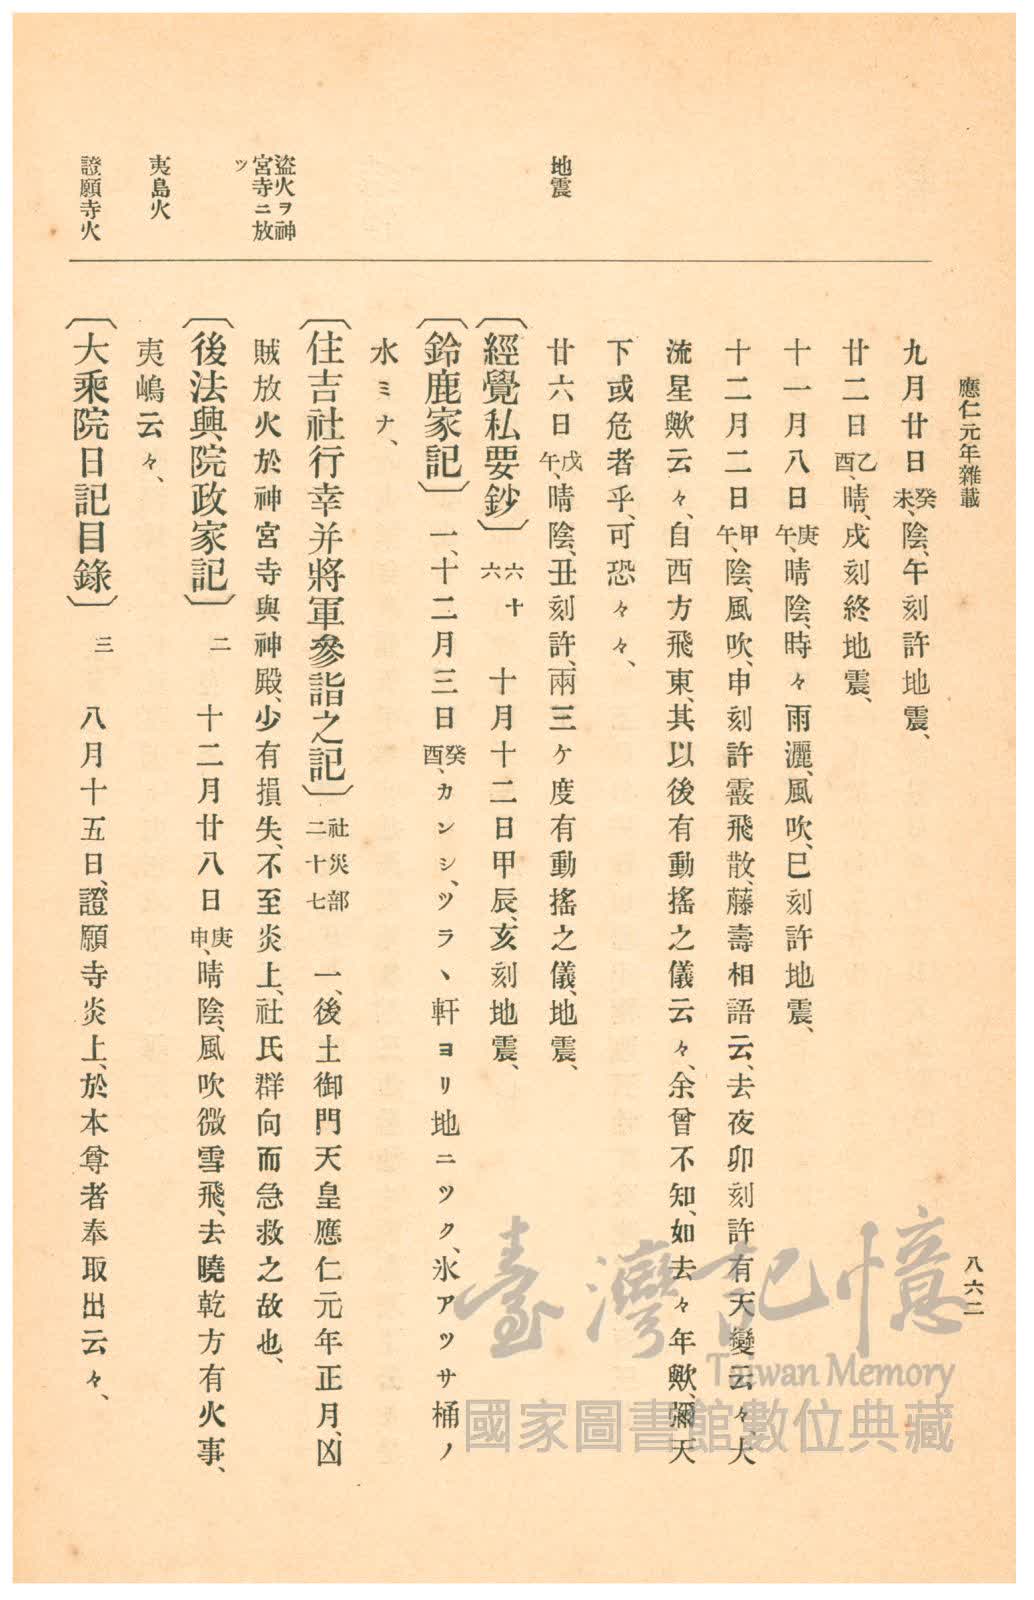 應仁元年雜載
八六二
九月廿日癸未、陰、午刻許地震、
廿二日乙酉、晴、戌刻終地震、
十一月八日庚午、晴陰、時々雨灑、風吹、巳刻許地震、
十二月二日甲午、陰、風吹、申刻許霰飛散、藤壽相語云、去夜卯刻許有天變云々、大
流星歟云々、自西方飛東、其以後有動搖之儀云々、余曾不知、如去々年歟、彌天
下或危者乎、可恐々々、
地震
廿六日戊午、晴陰、丑刻許、兩三ケ度有動搖之儀、地震、
〔經覺私要鈔〕六十六 十月十二日甲辰、亥刻地震、
〔鈴鹿家記〕一、十二月三日癸酉、カンシ、ツラヽ軒ヨリ地ニツク、氷アツサ桶ノ
水ミナ、
〔住吉社行幸并將軍參詣之記〕社災部二十七 一、後土御門天皇應仁元年正月、凶
盜火ヲ神宮寺ニ放ツ
賊放火於神宮寺與神殿、少有損失、不至炎上、社氏群向而急救之故也、
〔後法興院政家記〕二 十二月廿八日庚申、晴陰、風吹微雪飛、去曉乾方有火事、
夷島火
夷嶋云々、
證願寺火
〔大乘院日記目錄〕三 八月十五日、證願寺炎上、於本尊者奉取出云々、
臺灣記憶
Taiwan Memory
國家圖書館數位典藏